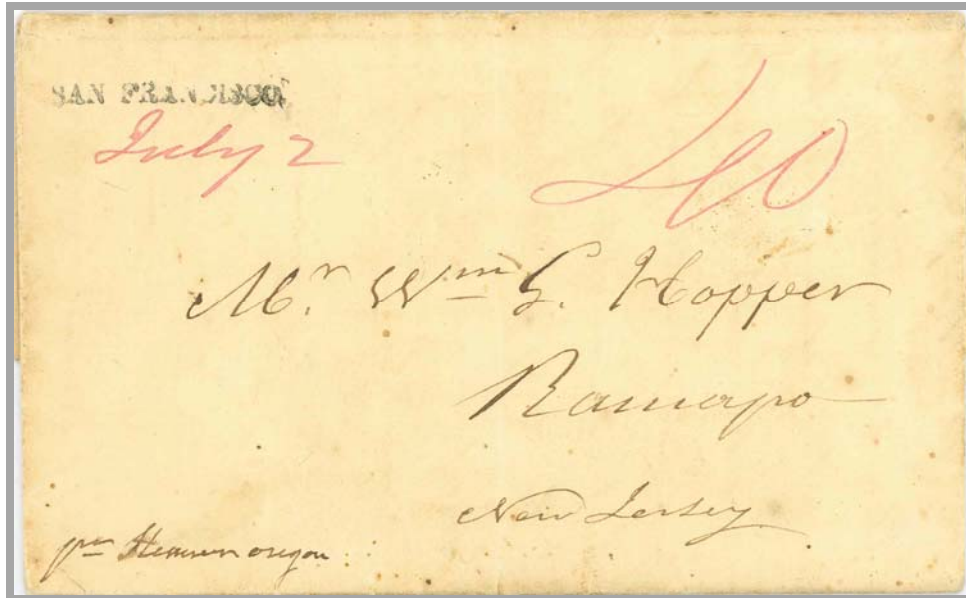 SAN FRANCISCO
July 2
40
Mr. Wm G. Hopper
Ramapo
New Jersey
per Steamer oregon